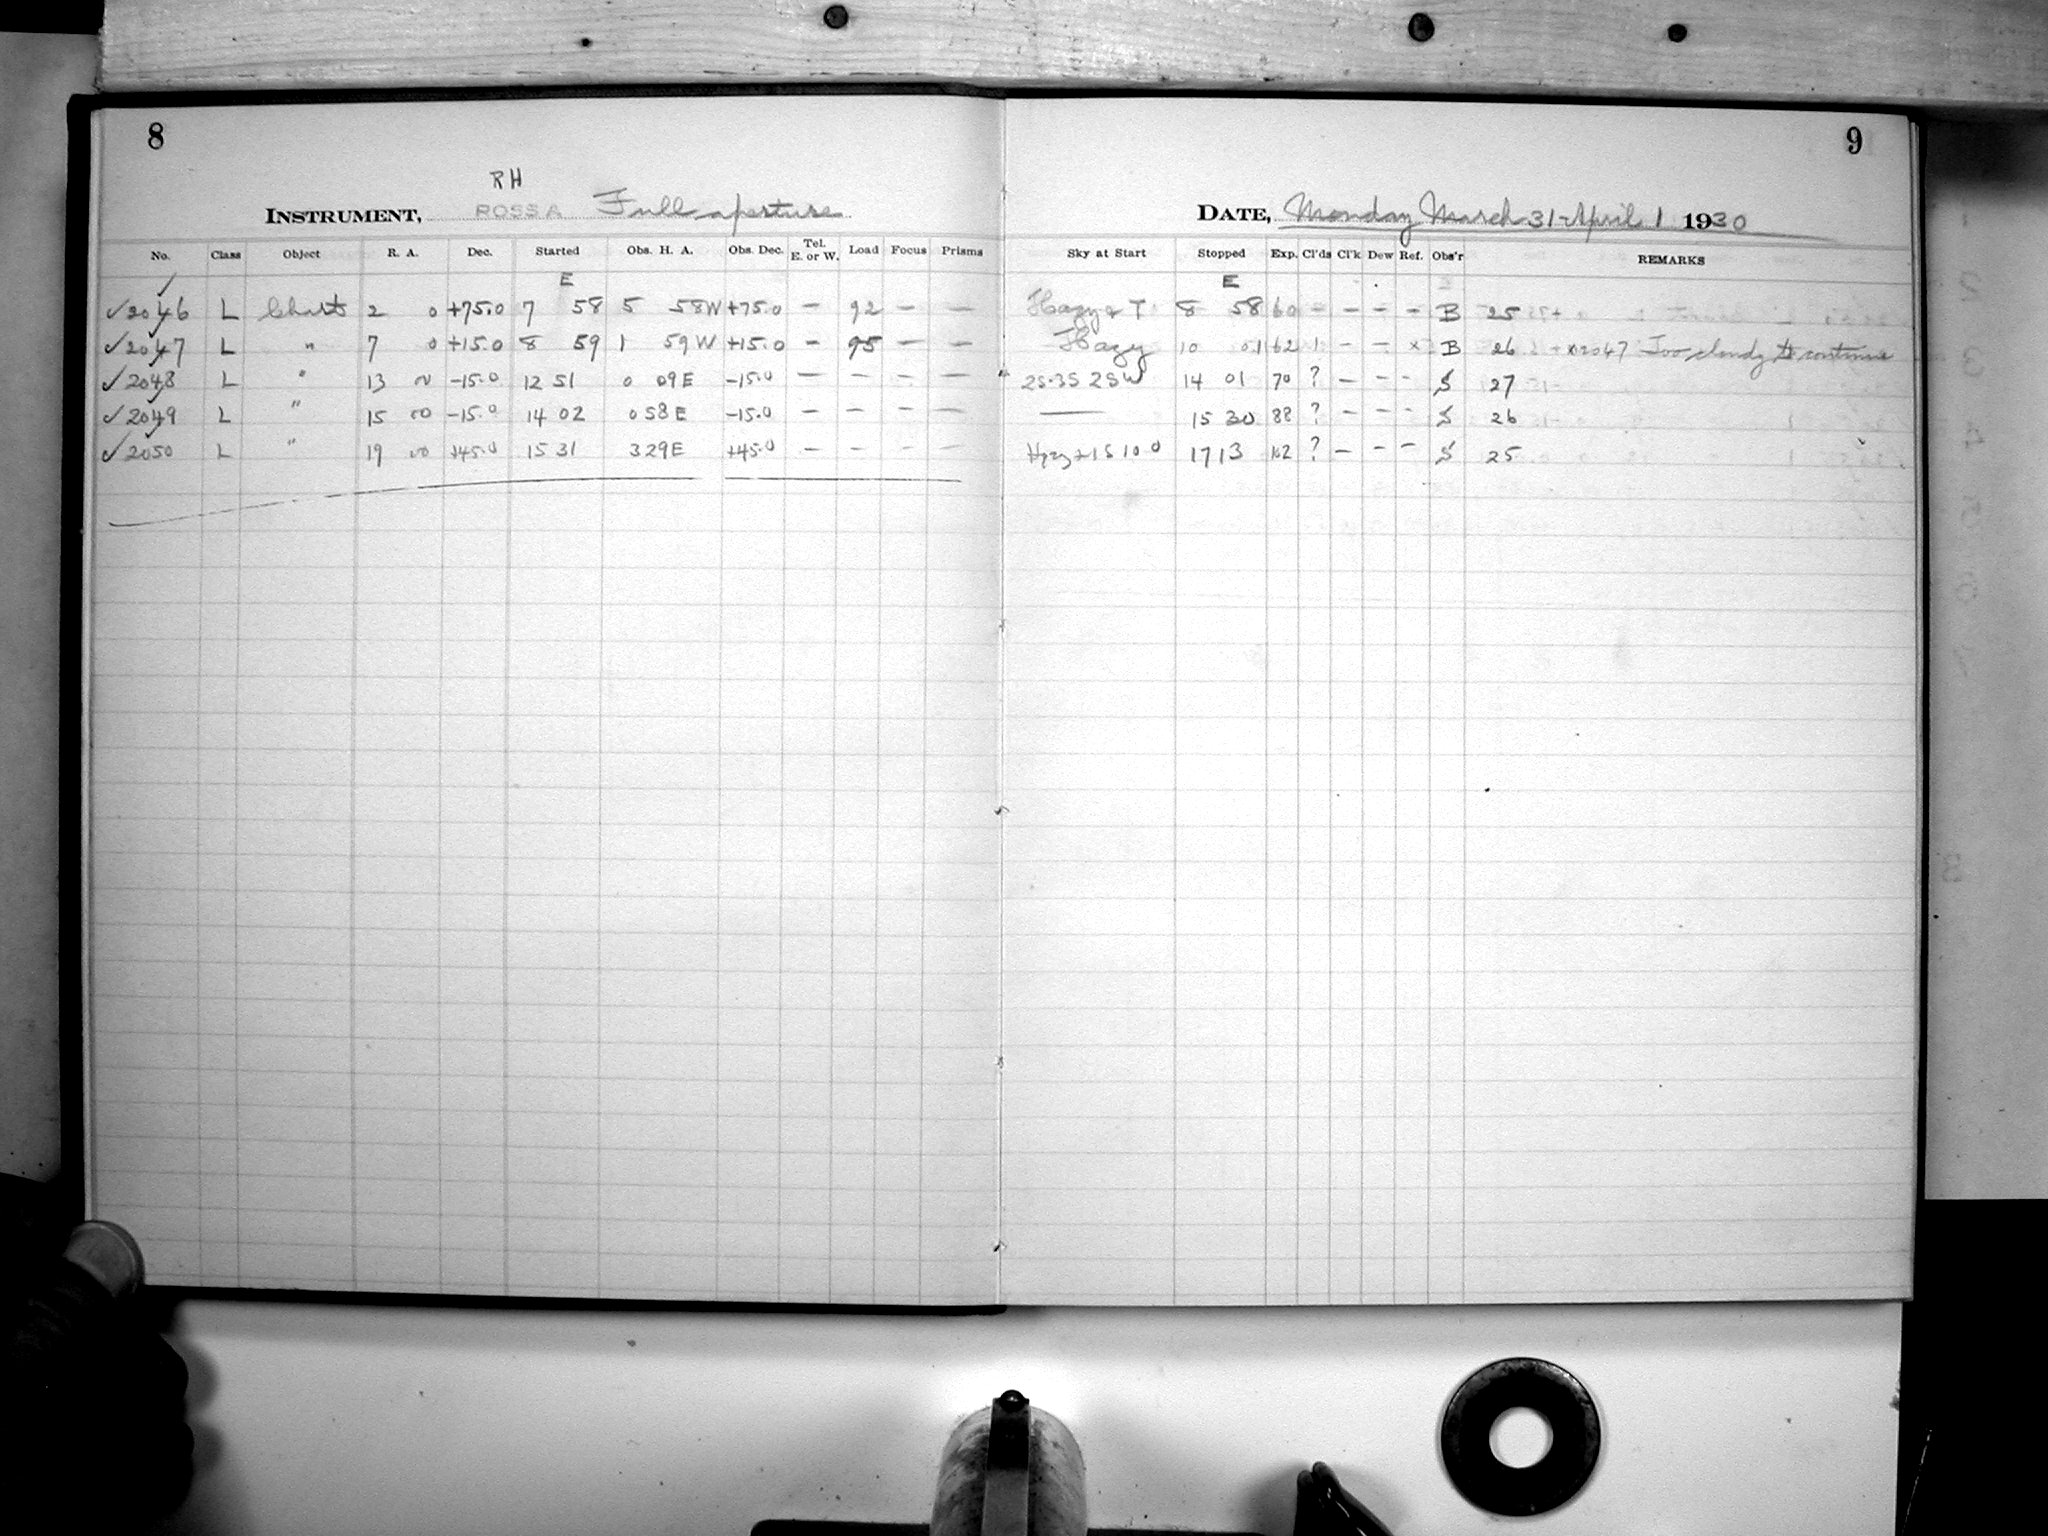 8
RH
INSTRUMENT, ROSS A Full aperture
No. Class Object R. A. Dec. Started Obs. H. A. Obs. Dec. Tel. E. or W. Load Focus Prisms
E
✓2046 L Chart 2 0 +75.0 7 58 5 58W +75.0 – 92 – –
✓2047 L " 7 0 +15.0 8 59 1 59W +15.0 – 95 – –
✓2048 L " 13 00 -15.0 12 51 0 09E -15.0 – – – –
✓2049 L " 15 00 -15.0 14 02 0 58E -15.0 – – – –
✓2050 L " 19 00 +45.0 15 31 3 29E +45.0 – – – –
9
DATE, Monday March 31-April 1 1930
Sky at Start Stopped Exp. Cl'ds Cl'k Dew Ref. Obs'r REMARKS
E
Hazy & T 8 58 60 – – – – B 25
Hazy 10 01 62 1 – – x B 26 x2047 Too cloudy to continue
2S-3S 2SW 14 01 70 ? – – – S 27
— 15 30 88 ? – – – S 26
Hazy + 1S 10 0 17 13 102 ? – – – S 25